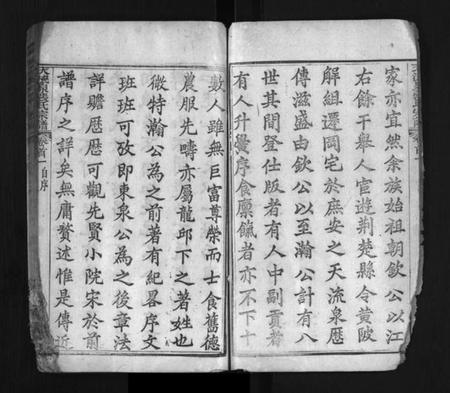 家亦宜然余族始祖朝欽公以江
右餘干舉人宦遊荆楚縣令黄陂
解組還岡宅於庶安之天流泉歷
傳滋盛由欽公以至瀚公計有八
世其間登仕版者有人中副貢者
有人升黌序食廪餼者亦不下十
數人雖無巨富尊榮而士食舊德
農服先疇亦屬龍邱下之著姓也
微特瀚公為之前著有紀畧序文
班班可攷即東泉公為之後章法
詳贍歷歷可觀先賢小院宋於前
譜序之詳矣無庸贅述惟是傳近
氏宗譜
卷首
自序